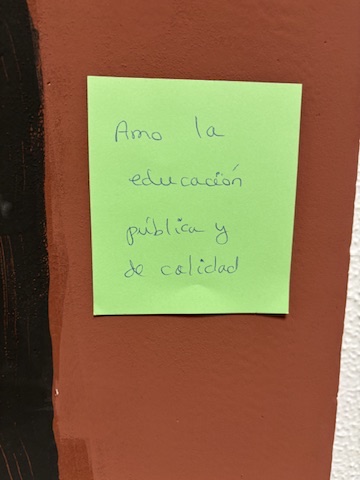 Amo la
educación
pública y
de calidad